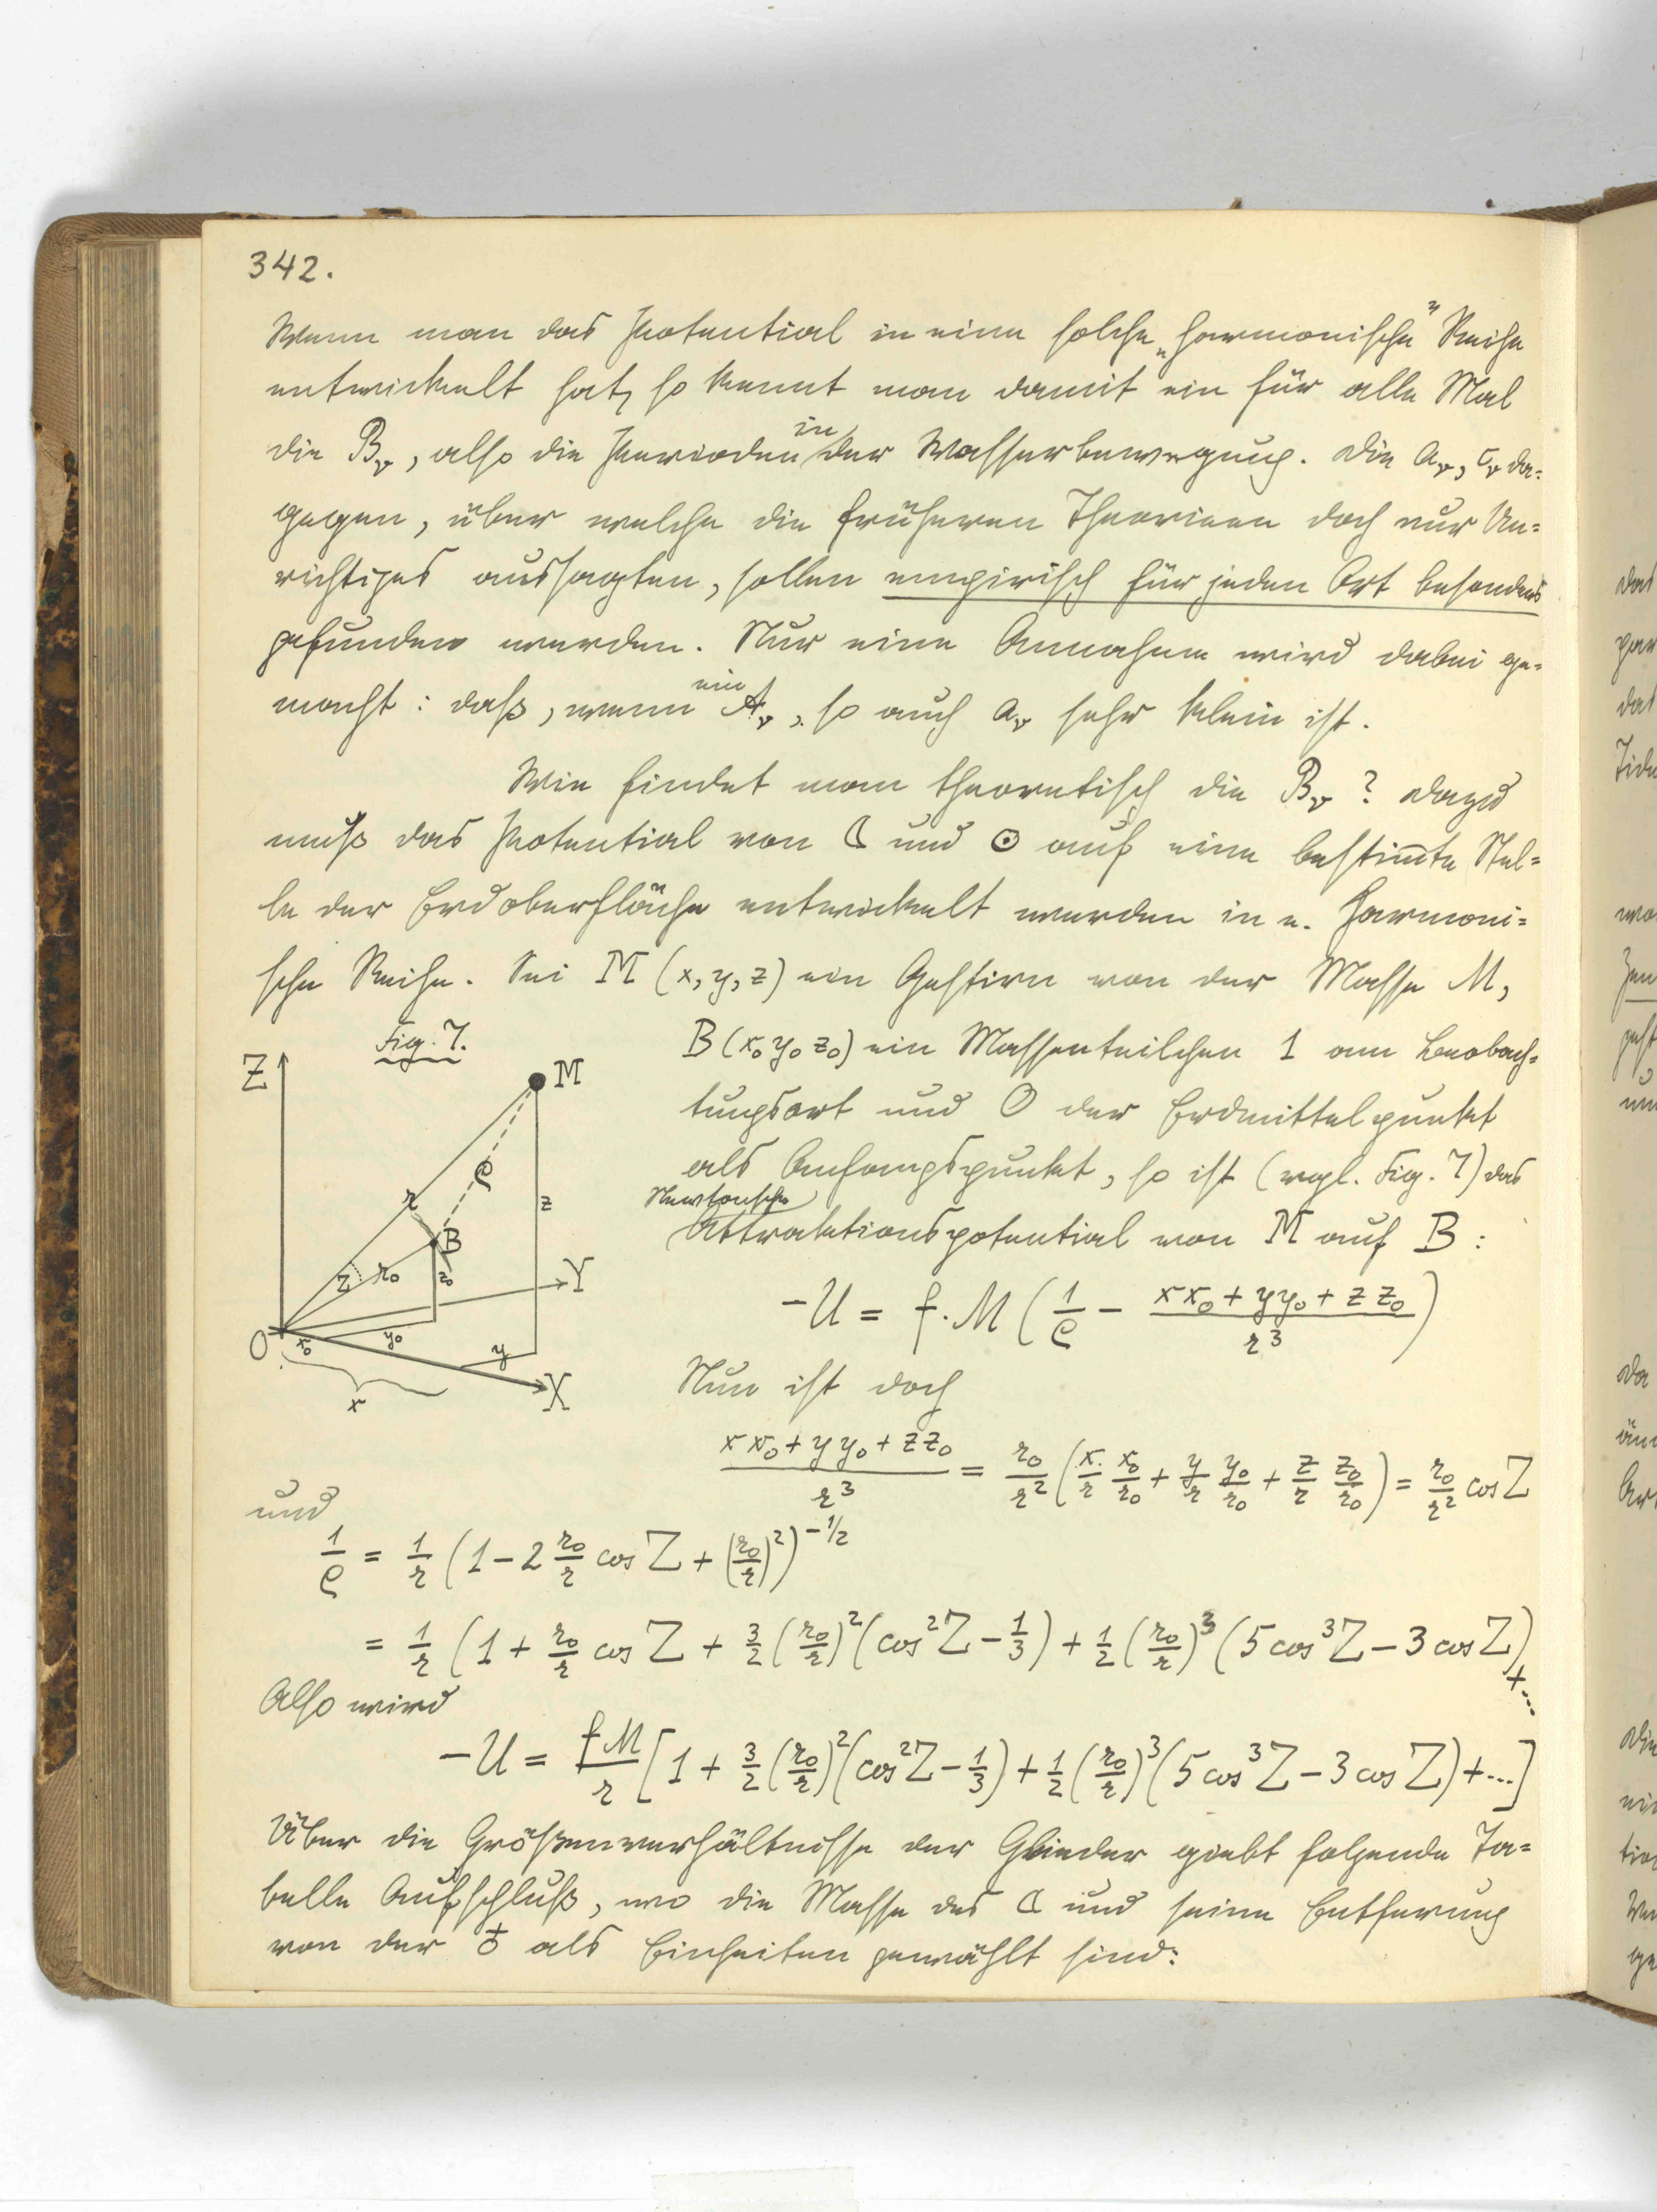 342.
Wenn man das Potential in eine solche „harmonische" Reihe
entwickelt hat, so kennt man damit ein für alle Mal
die Bᵥ, also die Perioden in der Wasserbewegung. Die aᵥ, cᵥ da=
gegen, über welche die früheren Theorieen doch nur Un=
richtiges aussagten, sollen empirisch für jeden Ort besonders
gefunden werden. Nur eine Annahme wird dabei ge=
macht: daß, wenn ein Aᵥ, so auch aᵥ sehr klein ist.
Wie findet man theoretisch die Bᵥ? Dazu
muß das Potential von ☾ und ☉ auf eine bestim̅te Stel=
le der Erdoberfläche entwickelt werden in e. harmoni=
sche Reihe. Sei M (x, y, z) ein Gestirn von der Masse M,
Fig. 7.
Z
M
ρ
r
z
B
Z
r₀
z₀
Y
O
x₀
y₀
y
X
x
B (x₀ y₀ z₀) ein Massenteilchen 1 am Beobach=
tungsort und O der Erdmittelpunkt
als Anfangspunkt, so ist (vgl. Fig. 7) das
Newtonsche
Attraktionspotential von M auf B:
-U = f·M (1/ρ - (xx₀ + yy₀ + zz₀)/r³)
Nun ist doch
(xx₀ + yy₀ + zz₀)/r³ = r₀/r² (x/r x₀/r₀ + y/r y₀/r₀ + z/r z₀/r₀) = r₀/r² cos Z
und
1/ρ = 1/r (1 - 2 r₀/r cos Z + (r₀/r)²)^-1/2
= 1/r (1 + r₀/r cos Z + 3/2 (r₀/r)² (cos² Z - 1/3) + 1/2 (r₀/r)³ (5 cos³ Z - 3 cos Z) + ...
Also wird
-U = fM/r [1 + 3/2 (r₀/r)² (cos² Z - 1/3) + 1/2 (r₀/r)³ (5 cos³ Z - 3 cos Z) + ...]
Über die Größenverhältnisse der Glieder giebt folgende Ta=
belle Aufschluß, wo die Masse des ☾ und seine Entfernung
von der ♁ als Einheiten gewählt sind: